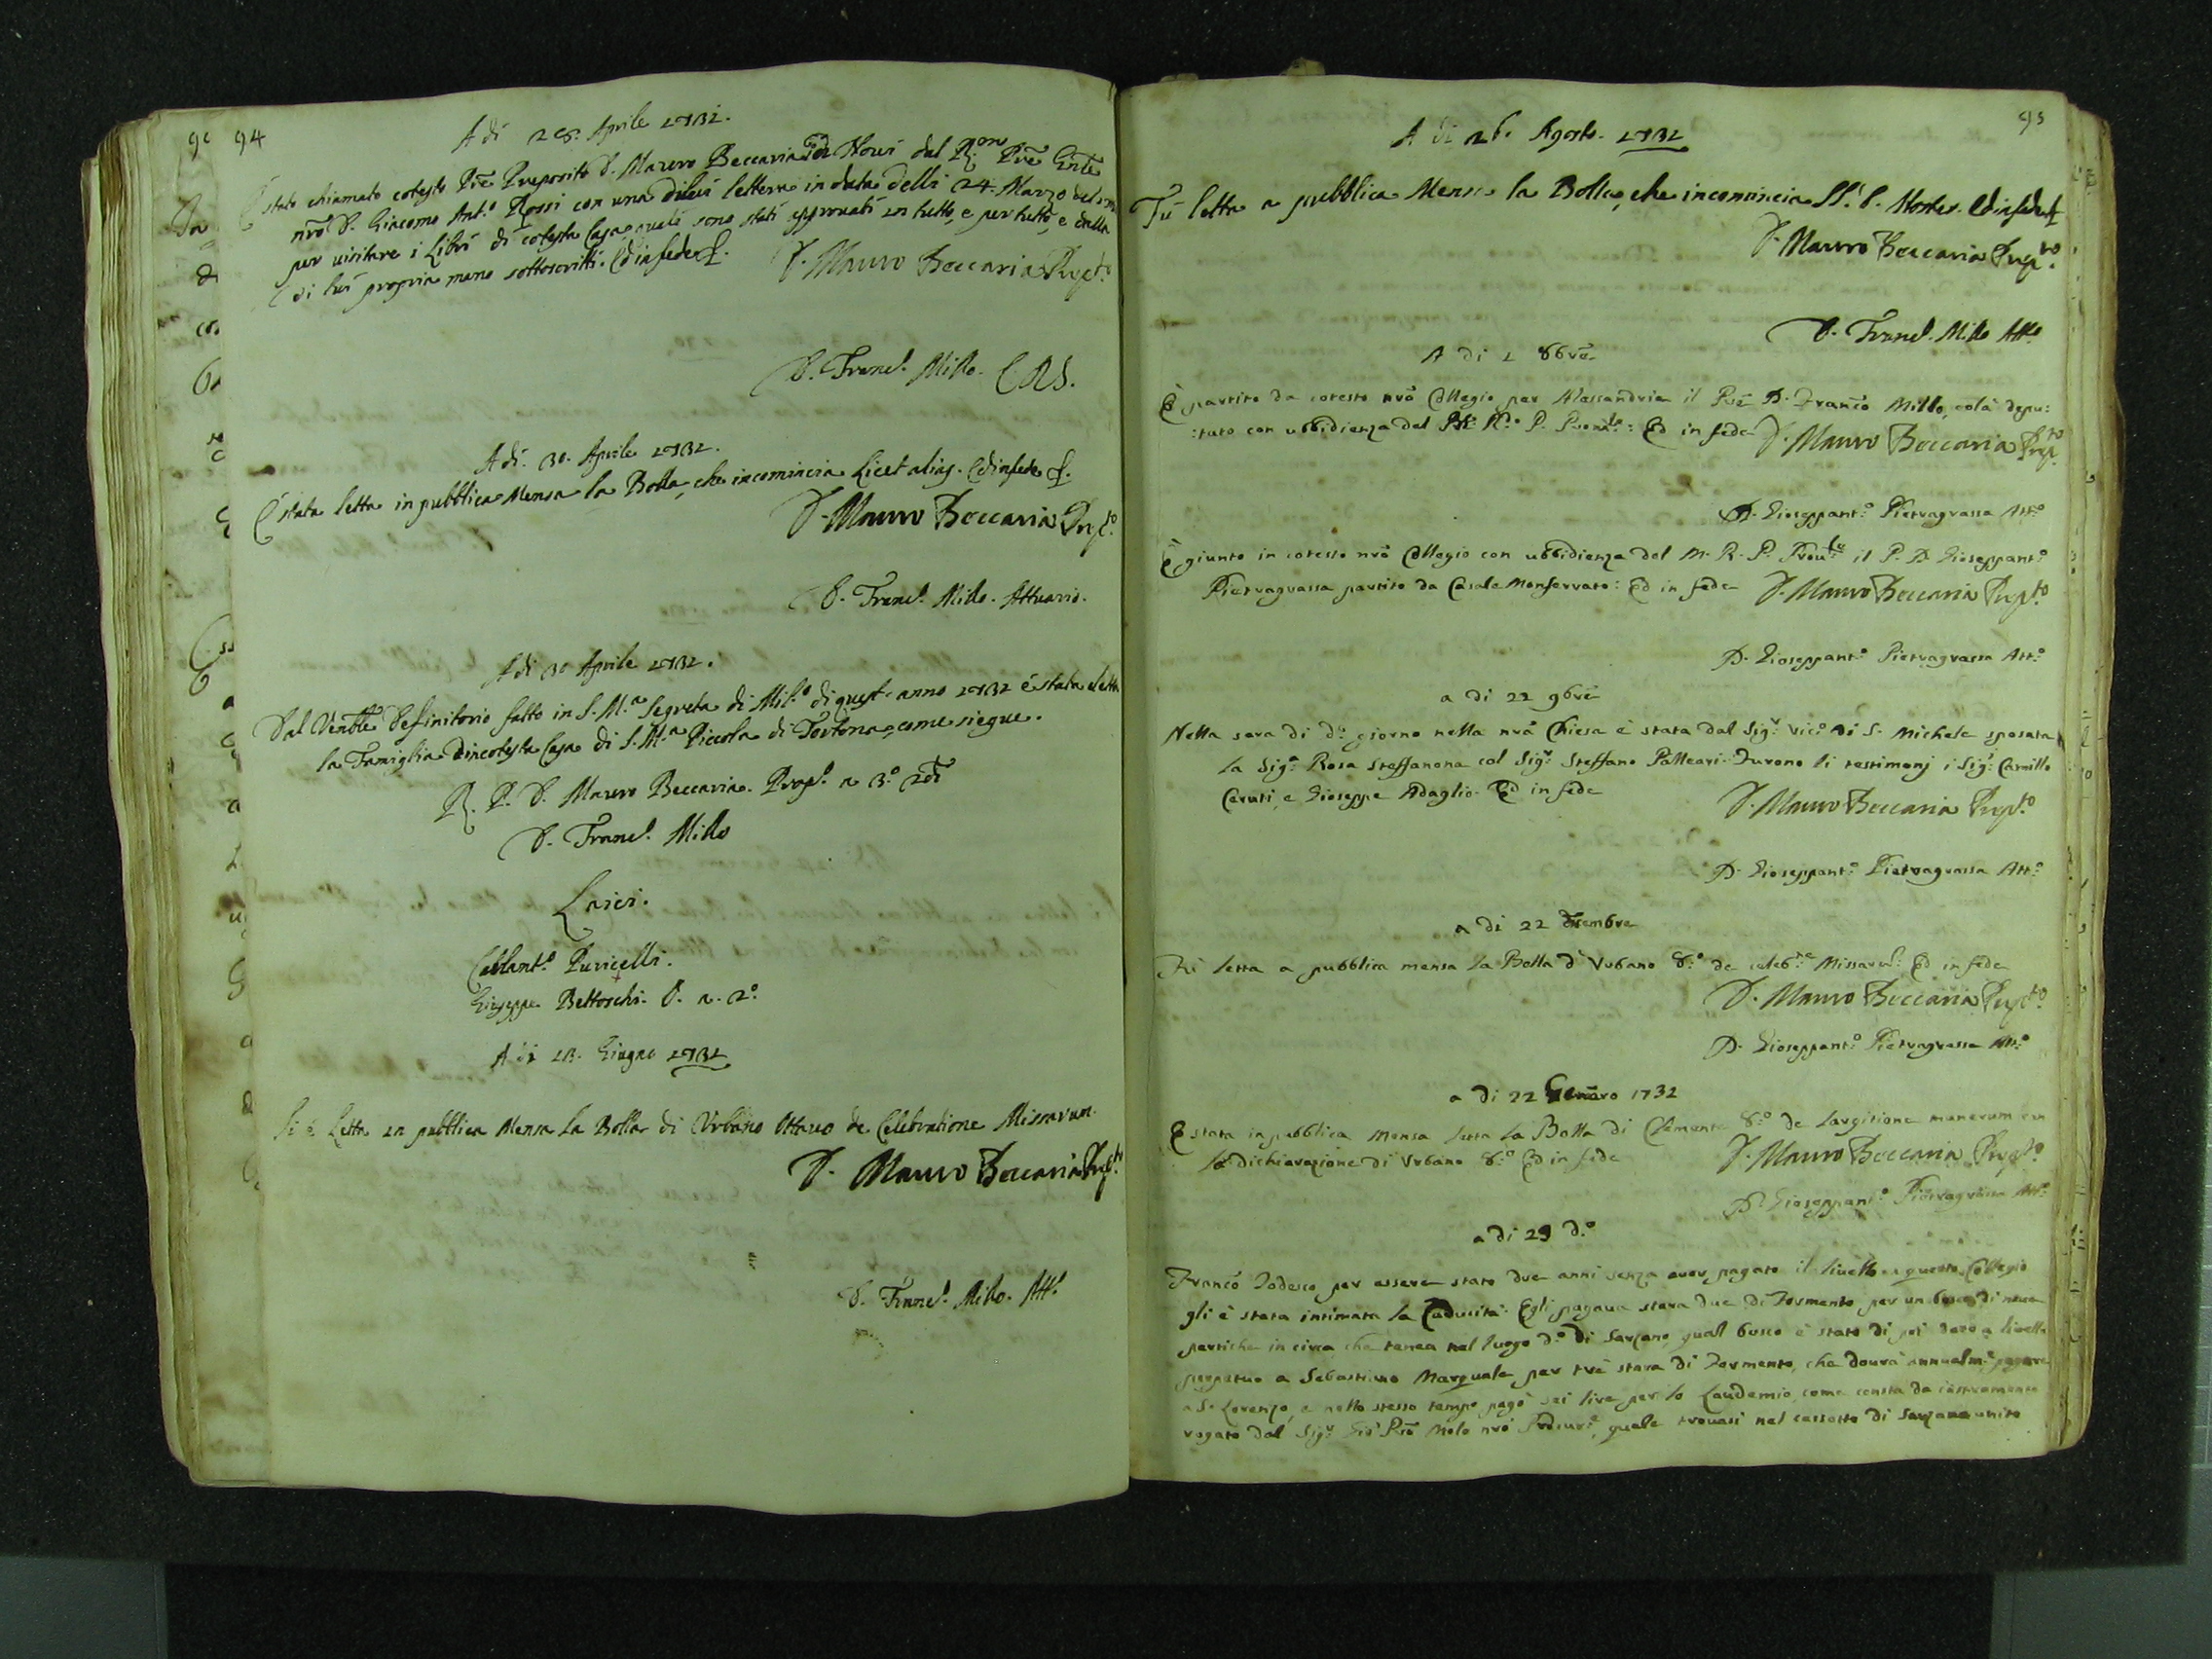 94
A di 28. Aprile 1732.
È stato chiamato cotesto Prē Preposito D. Mauro Beccaria da Novi dal R.mo Prē Gnle
nrō D. Giacomo Ant.o Rossi con una di lui lettera in data delli 24. Marzo
per visitare i Libri di cotesta Casa, quali sono stati approvati in tutto, e per tutto, e dalla
di lui propria mano sottoscritti. Ed in fede
D. Mauro Beccaria Prep.to
D. Franc.o Millo. C.R.S.
A di 30. Aprile 1732.
È stata letta in pubblica Mensa la Bolla, che incomincia Licet alias. Ed in fede
D. Mauro Beccaria Prep.to
D. Franc.o Millo. Attuario.
A di 30 Aprile 1732.
Dal Venble Definitorio fatto in S. M.a Segreta di Mil.o di quest'anno 1732 è stata eletta
la Famiglia di cotesta Casa di S. M.a Piccola di Tortona, come siegue.
R. P. D. Mauro Beccaria. Prep.o a 3.o
D. Franc.o Millo
Laici.
Puricelli.
Giuseppe Bettoschi. O. a. 2.o
A di 13. Giugno 1732
Si è Letta in pubblica Mensa la Bolla di Urbano Ottavo de Celebratione Missarum.
D. Mauro Beccaria Prep.to
D. Franc.o Millo. Att.o
95
A di 26. Agosto. 1732
Fù letta a pubblica Mensa la Bolla, che incomincia Ed in fede
D. Mauro Beccaria Prep.to
D. Franc.o Millo Att.o
A di 1 8bre
È partito da cotesto nrō Collegio per Alessandria il Prē D. Franco Millo, colà depu:
:tato con ubbidienza del P. Prov.le: Ed in fede D. Mauro Beccaria Prep.to
D. Gioseppant.o Pietragrassa Att.o
È giunto in cotesto nrō Collegio con ubbidienza del M. R. P. Prov.le il P. D. Gioseppant.o
Pietragrassa partito da Casale Monferrato: Ed in fede D. Mauro Beccaria Prep.to
D. Gioseppant.o Pietragrassa Att.o
a di 22 9bre
Nella sera di d.o giorno nella nrā Chiesa è stata dal Sig.r Vic.o di S. Michele sposata
la Sig.a Rosa Steffanona col Sig.r Steffano Palleari. Furono li testimonj i Sig.i Camillo
Ceruti, e Gioseppe Adaglio. Ed in fede
D. Mauro Beccaria Prep.to
D. Gioseppant.o Pietragrassa Att.o
a di 22 Dicembre
Fù letta a pubblica mensa la Bolla d'Urbano 8.o de celeb.ne Missarū. Ed in fede
D. Mauro Beccaria Prep.to
D. Gioseppant.o Pietragrassa Att.o
a di 22 Gennaro 1732
È stata in pubblica mensa letta la Bolla di Clemente 8.o de largitione munerum con
la dichiarazione di Urbano 8.o Ed in fede D. Mauro Beccaria Prep.to
D. Gioseppant.o Pietragrassa Att.o
a di 29 d.o
Franco Todesco per essere stato due anni senza aver pagato il livello a questo Collegio
gli è stata intimata la Caducità. Egli pagava stara due di Formento per un bosco di nove
pertiche in circa che tenea nel luogo d.o di Sarzano, qual bosco è stato di poi dato a livello
perpetuo a Sebastiano Marquale per trè stara di Formento, che dovrà annualm.e pagare
a S. Lorenzo, e nello stesso tempo pagò sei lire per lo Laudemio, come consta da instromento
rogato dal Sig.r Gio Molo nrō Procur.e, quale trovasi nel cassetto di Sarzano unito